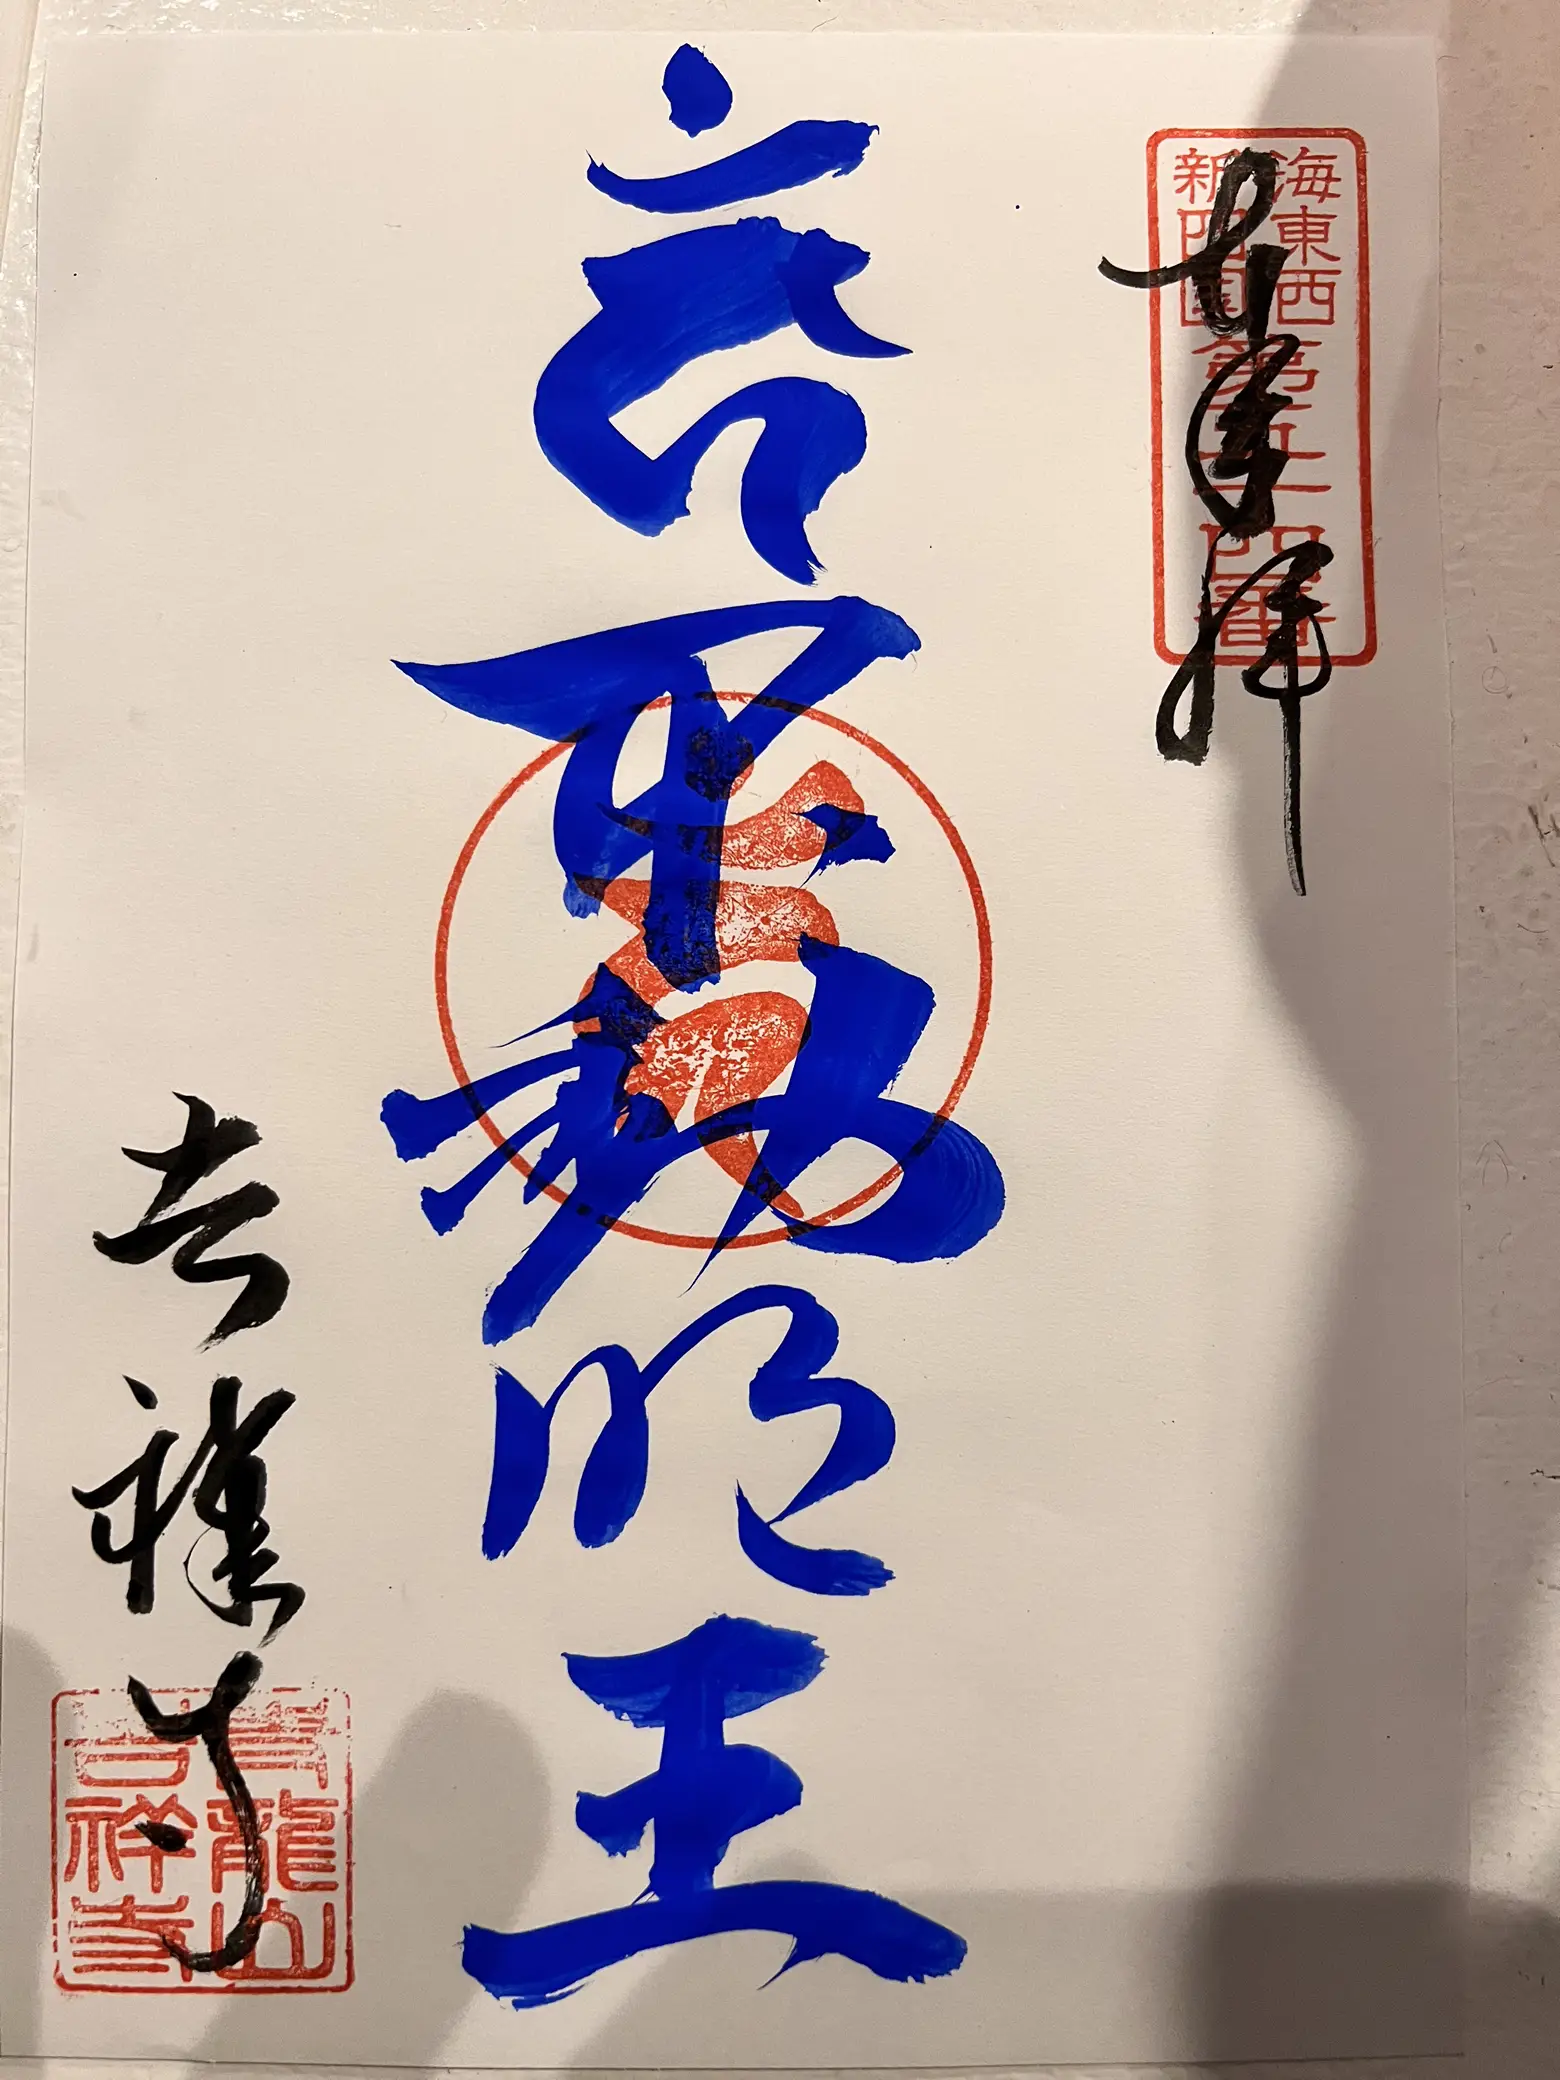 奉拝
海東西
新四国
第五十四番
不動明王
吉祥寺
青龍山
吉祥寺